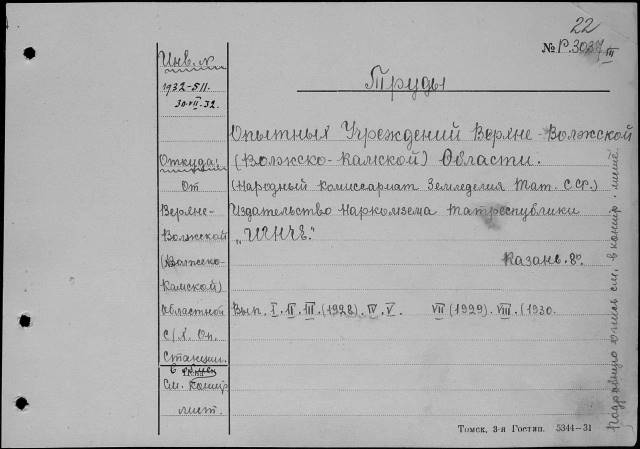 22
№ Р.3037 III
Труды
Опытных Учреждений Верхне-Волжской
(Волжско-Камской) Области.
(Народный Комиссариат Земледелия Тат. ССР.)
Издательство Наркомзема Татреспублики
„ИГНЧЕ."
Казань. 8°.
Вып. I. II. III. (1928). IV. V. VII (1929). VIII. (1930.
Инв. №
1932-511.
30.VII.32.
Откуда:
От
Верхне-
Волжской
(Волжско-
Камской)
Областной
С/х. Оп.
Станции.
См. Контр
лист.
Подробную опись см. в контр. листе.
Томск, 3-я Гостип. 5344—31